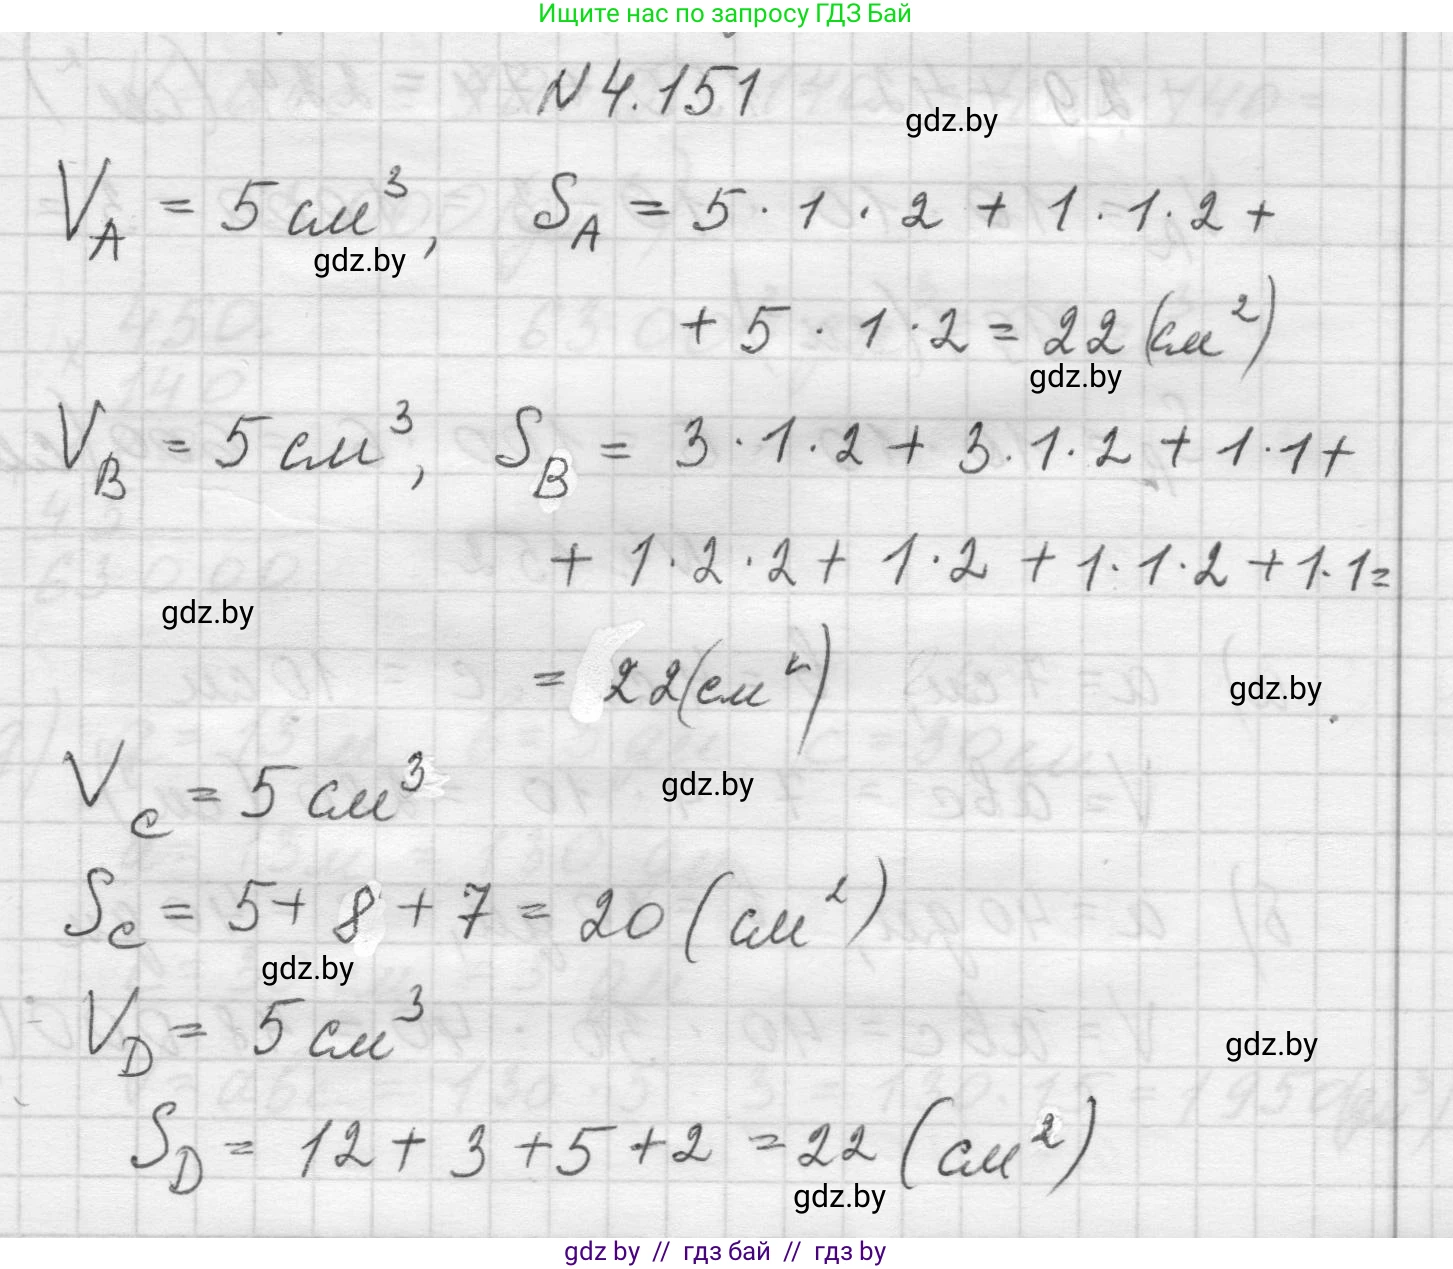 Ищите нас по запросу ГДЗ Бай
N 4.151
gdz.by
V_A = 5 см³, S_A = 5 · 1 · 2 + 1 · 1 · 2 +
gdz.by
+ 5 · 1 · 2 = 22 (см²)
gdz.by
V_B = 5 см³, S_B = 3 · 1 · 2 + 3 · 1 · 2 + 1 · 1 +
+ 1 · 2 · 2 + 1 · 2 + 1 · 1 · 2 + 1 · 1 =
gdz.by
= 22 (см²)
gdz.by
V_C = 5 см³
gdz.by
S_C = 5 + 8 + 7 = 20 (см²)
gdz.by
V_D = 5 см³
gdz.by
S_D = 12 + 3 + 5 + 2 = 22 (см²)
gdz.by
gdz by // гдз бай // гдз by